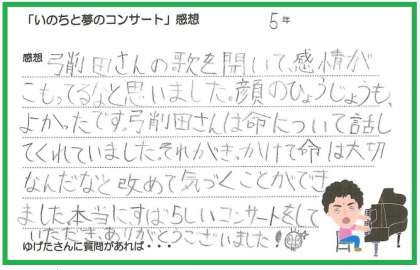 「いのちと夢のコンサート」感想 5年
感想 弓削田さんの歌を聞いて、感情が
こもってるなと思いました。顔のひょうじょうも、
よかったです。弓削田さんは命について話し
てくれていました。それがきっかけで命は大切
なんだなと改めて気づくことができ
ました。本当にすばらしいコンサートをして
いただきありがとうございました!
ゆげたさんに質問があれば・・・